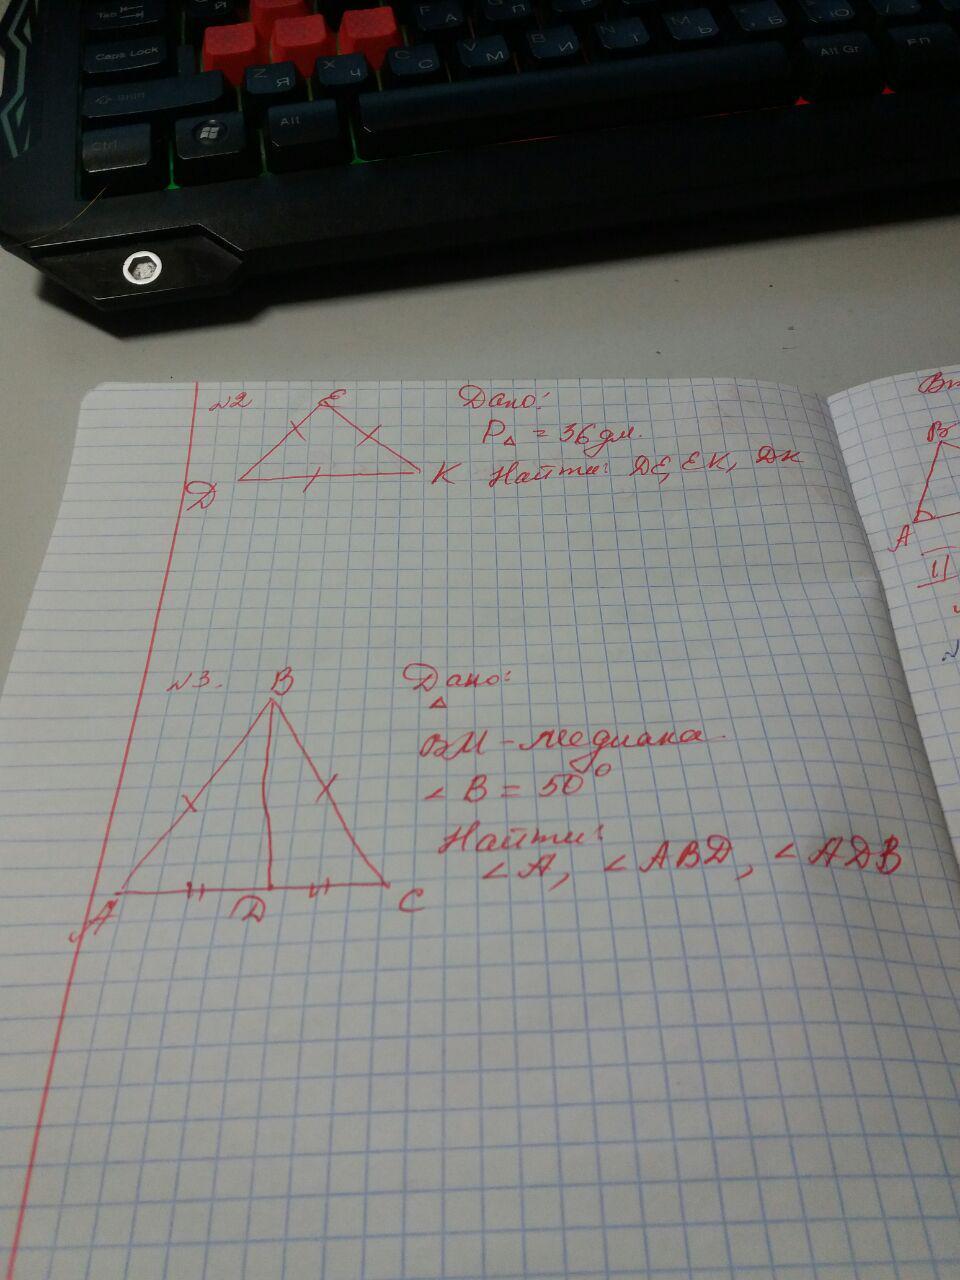 Tab
Caps Lock
Shift
Ctrl
Alt
Z Я
X Ч
C С
V М
B И
N Т
M Ь
F А
Alt Gr
Fn
№2
E
D
K
Дано:
P△ = 36 дм.
Найти: DE, EK, DK
№3.
B
A
D
C
Дано:
△
BM - медиана
∠ B = 50°
Найти:
∠A, ∠ABD, ∠ADB
B
A
II